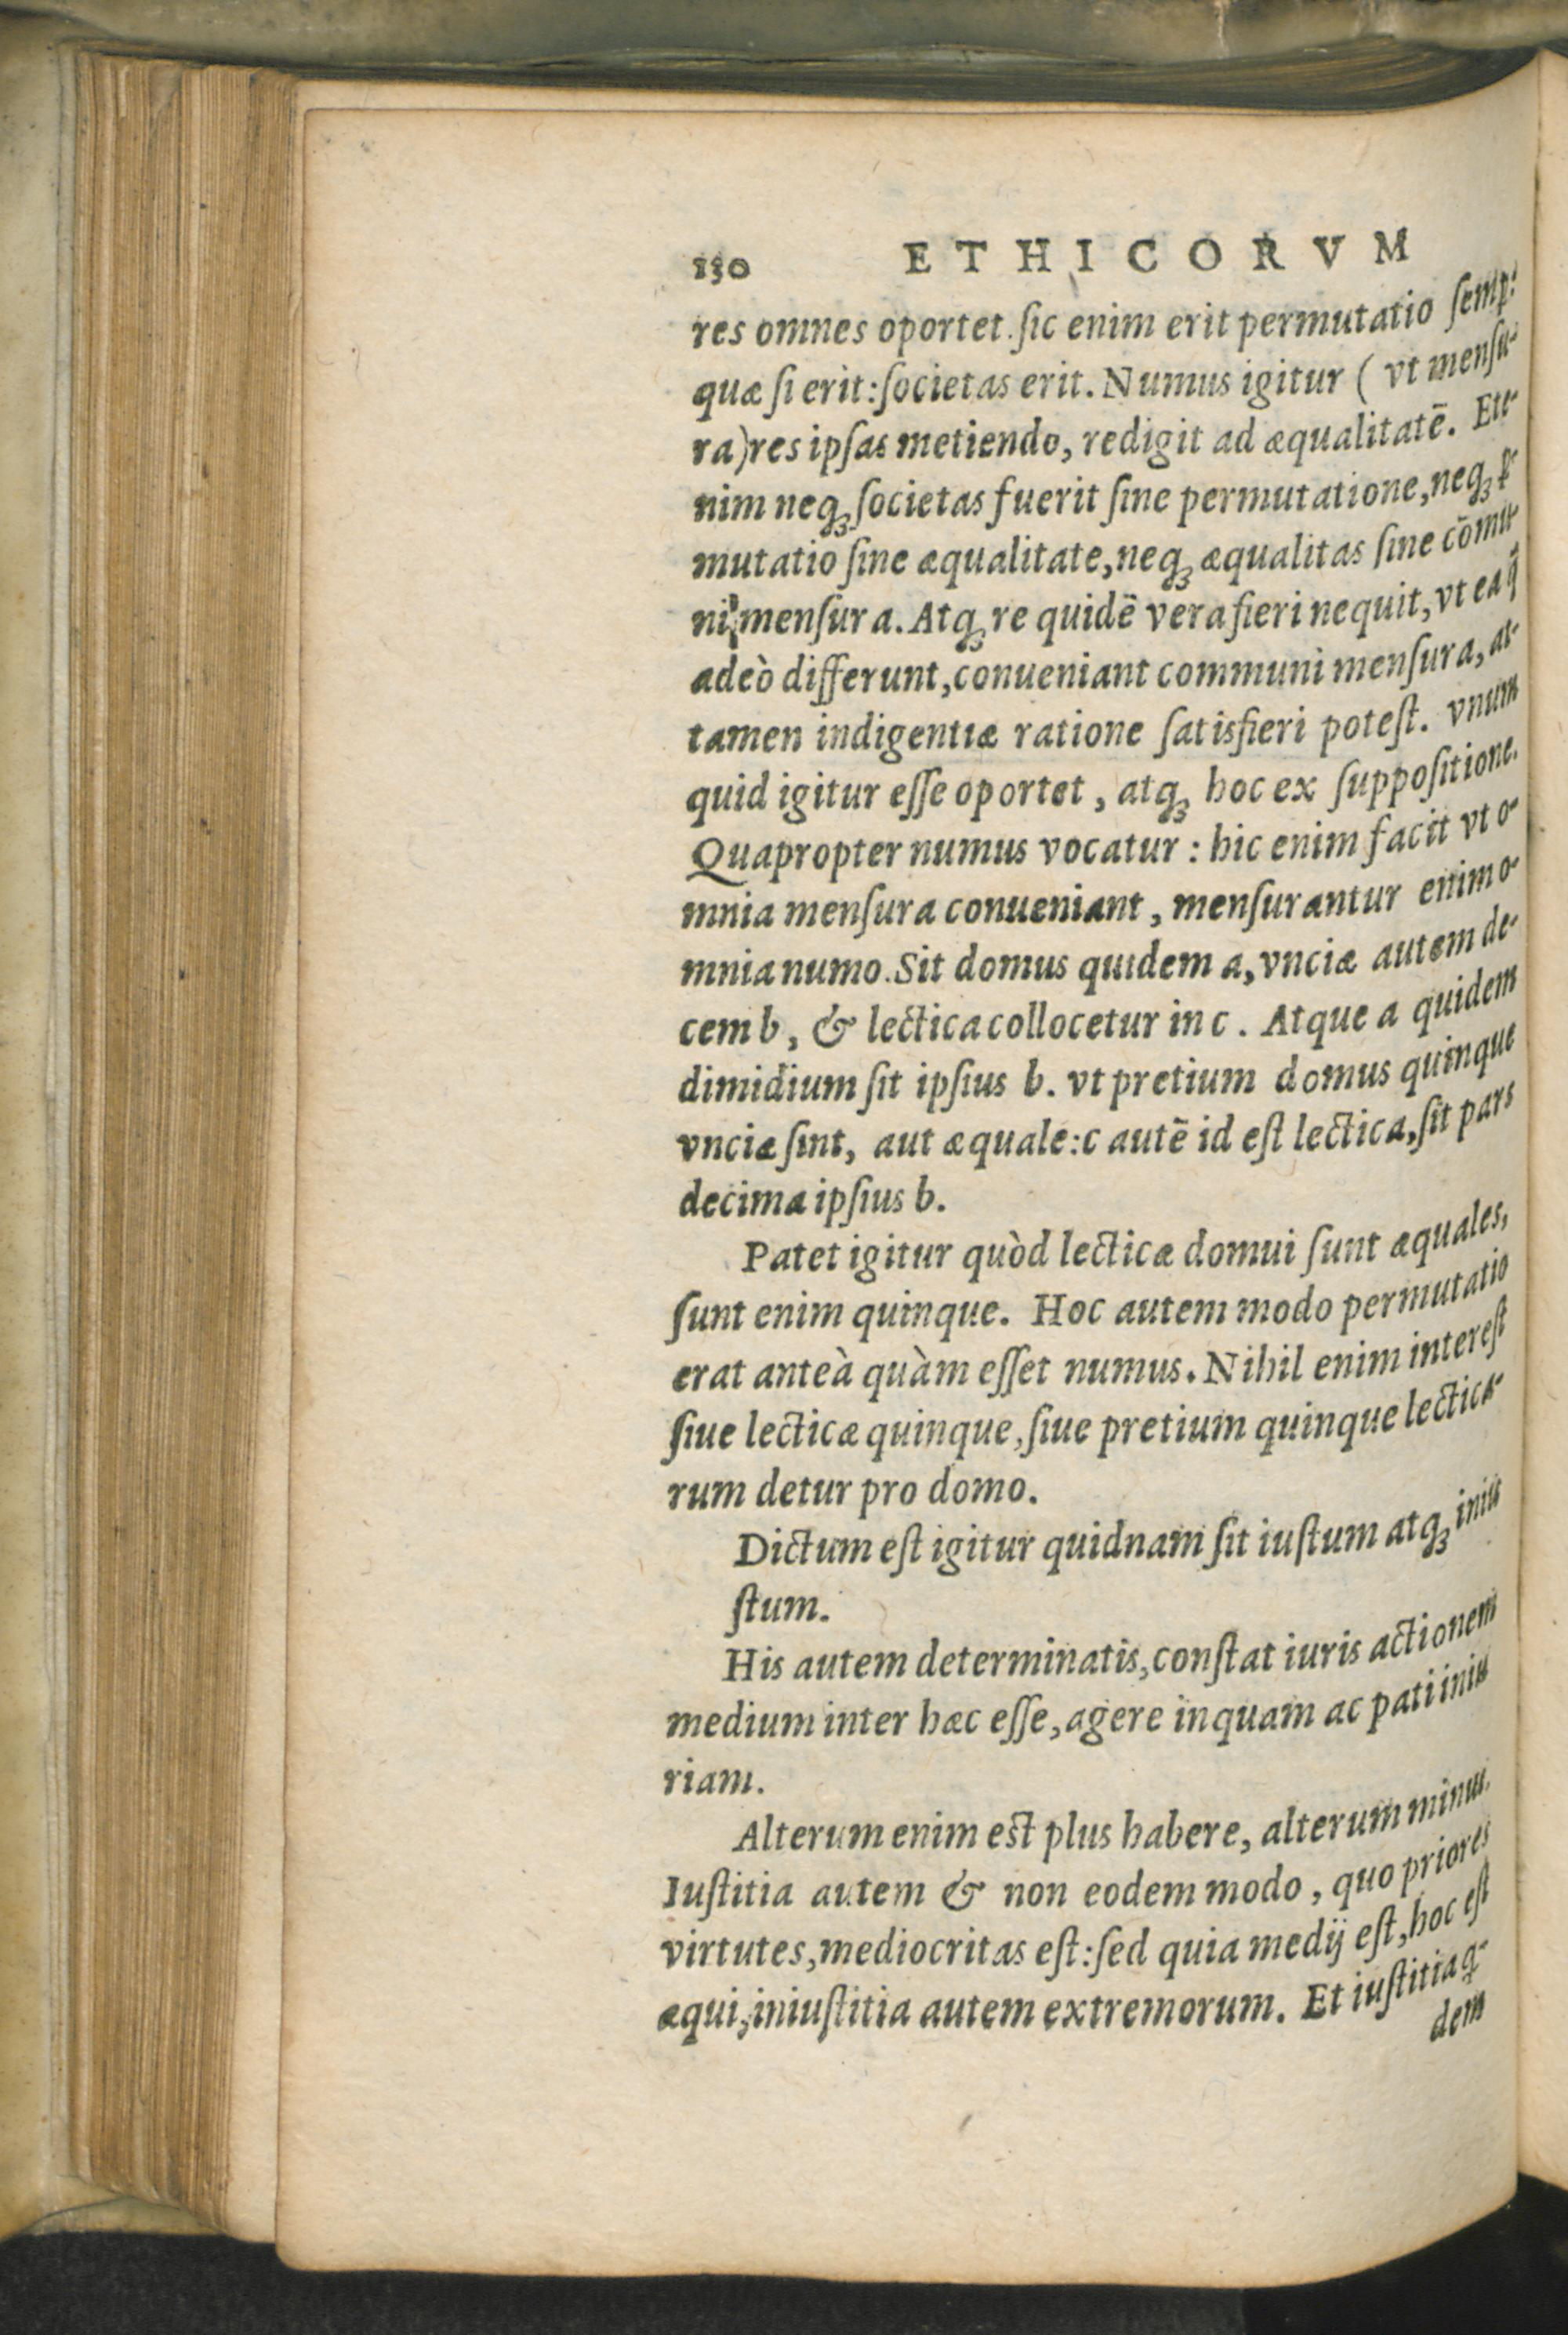 130 ETHICORVM
res omnes oportet. ſic enim erit permutatio ſemp:
quæ ſi erit: ſocietas erit. Numus igitur ( vt menſu-
ra) res ipſas metiendo, redigit ad æqualitatē. Ete-
nim neqꝫ ſocietas fuerit ſine permutatione, neqꝫ ꝑ-
mutatio ſine æqualitate, neqꝫ æqualitas ſine cōmu-
ni menſura. Atqꝫ re quidē vera fieri nequit, vt ea q̄
adeò differunt, conueniant communi menſura, at-
tamen indigentiæ ratione ſatisfieri poteſt. vnum
quid igitur eſſe oportet, atqꝫ hoc ex ſuppoſitione.
Quapropter numus vocatur : hic enim facit vt o-
mnia menſura conueniant, menſurantur enim o-
mnia numo. Sit domus quidem a, vnciæ autem de-
cem b, & lectica collocetur in c. Atque a quidem
dimidium ſit ipſius b. vt pretium domus quinque
vnciæ ſint, aut æquale: c autē id eſt lectica, ſit pars
decima ipſius b.
Patet igitur quòd lecticæ domui ſunt æquales,
ſunt enim quinque. Hoc autem modo permutatio
erat anteà quàm eſſet numus. Nihil enim intereſt
ſiue lecticæ quinque, ſiue pretium quinque lectica-
rum detur pro domo.
Dictum eſt igitur quidnam ſit iuſtum atqꝫ iniu
ſtum.
His autem determinatis, conſtat iuris actionem
medium inter hæc eſſe, agere inquam ac pati iniu
riam.
Alterum enim eſt plus habere, alterum minus.
Iuſtitia autem & non eodem modo, quo priores
virtutes, mediocritas eſt: ſed quia medij eſt, hoc eſt
æqui, iniuſtitia autem extremorum. Et iuſtitia q-
dem